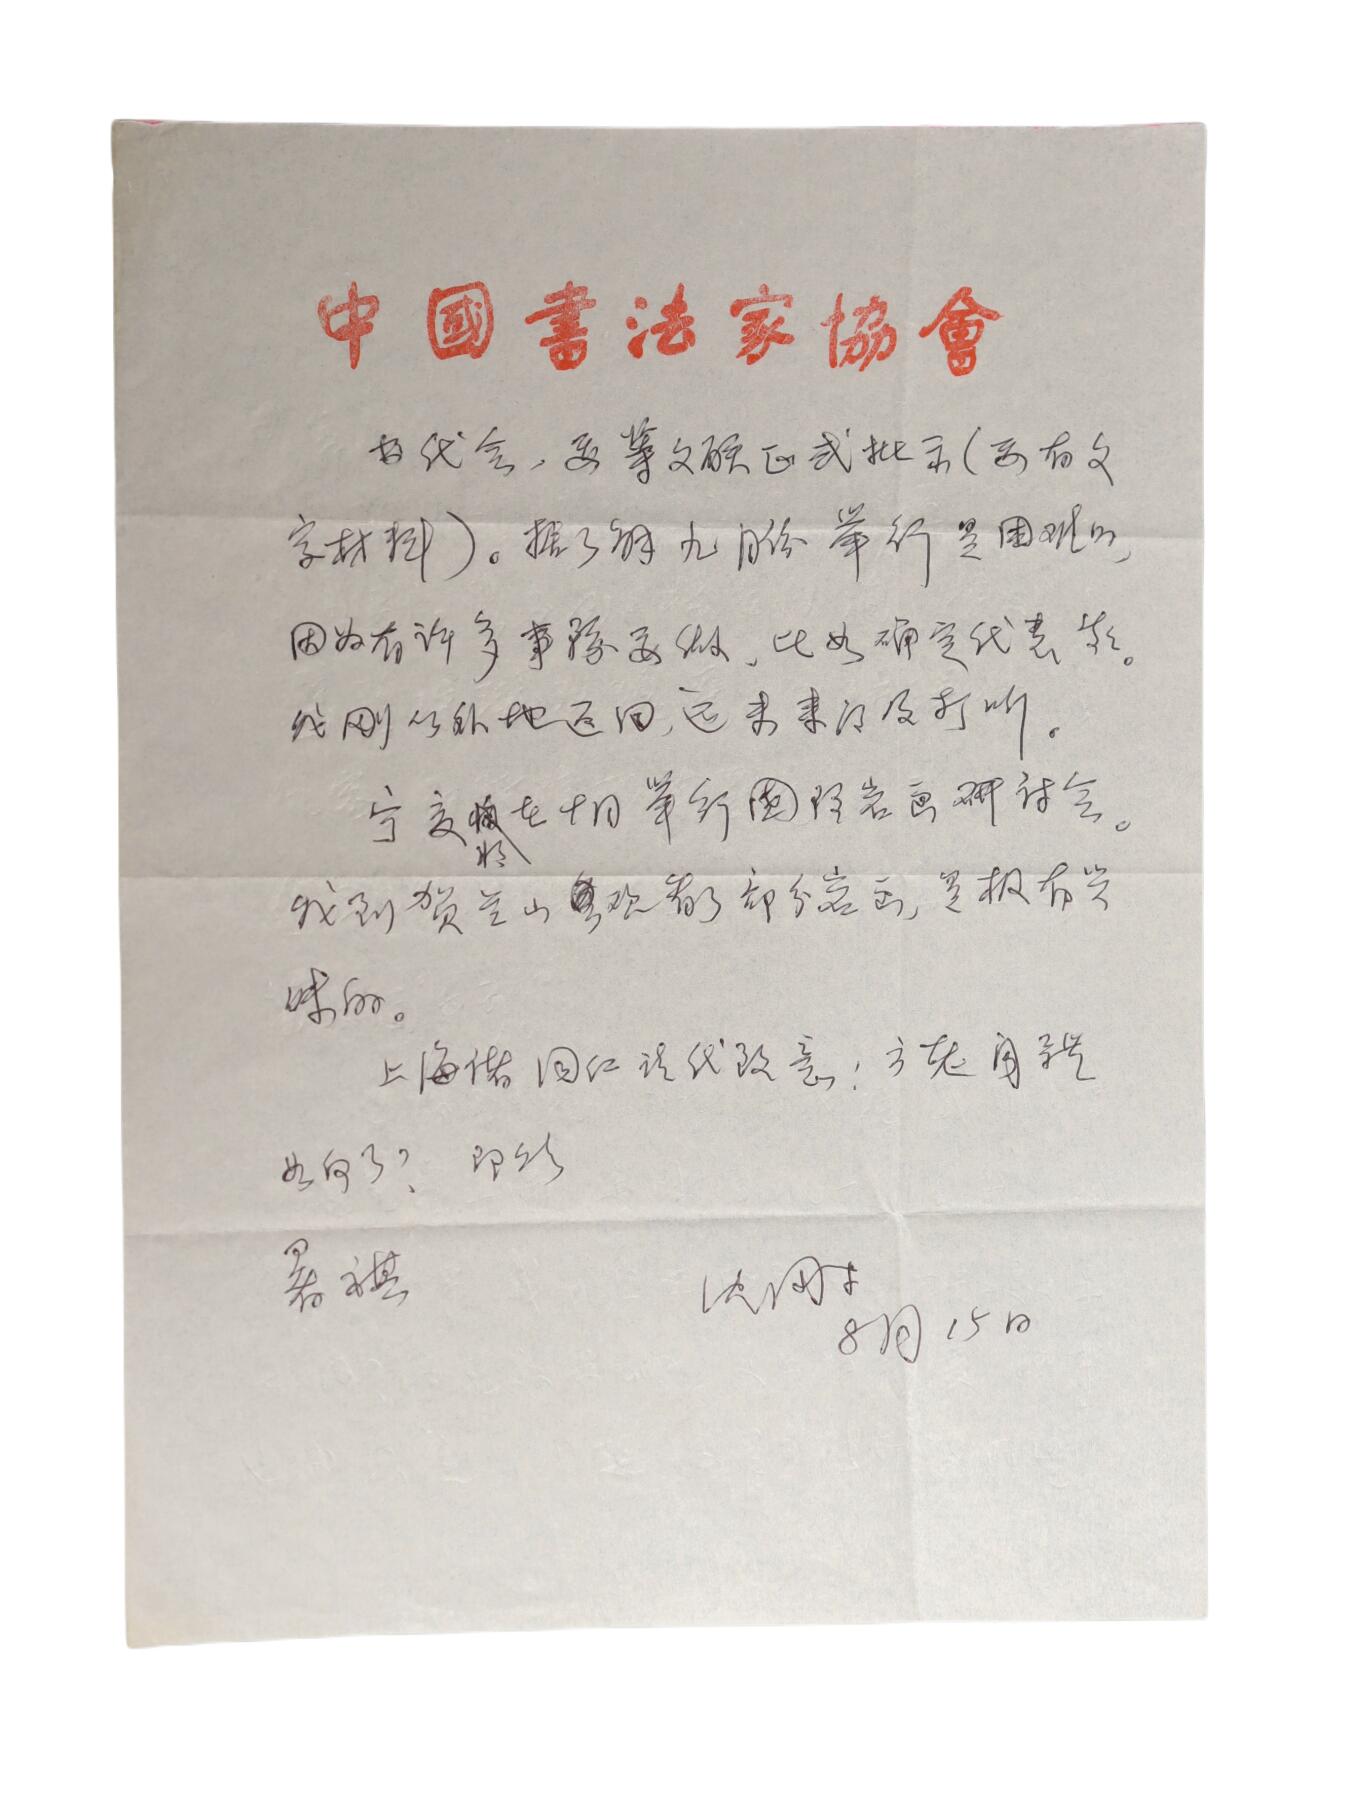 中國書法家協會
书代会，要等文联正式批示(要有文
字材料)。据了解九月份举行是困难的，
因为有许多事务要做，比如确定代表数。
我刚从外地返回，还未来得及打听。
宁夏将在十月举行国际岩画研讨会。
我到贺兰山观看了部分岩画，是极有兴
味的。
上海诸同仁请代致意；方老身体
如何了？即颂
暑祺
沈鹏
8月15日